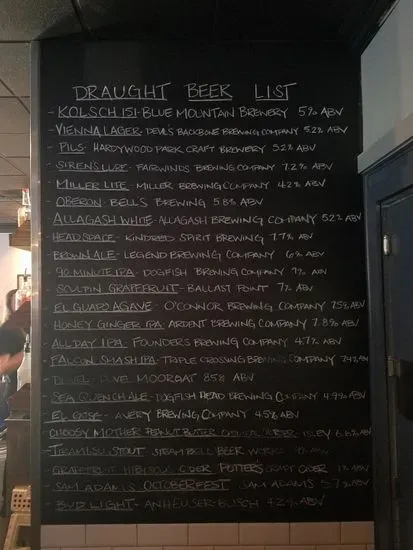 DRAUGHT BEER LIST
- KOLSCH 151 - BLUE MOUNTAIN BREWERY 5% ABV
- VIENNA LAGER - DEVILS BACKBONE BREWING COMPANY 5.2% ABV
- PILS - HARDYWOOD PARK CRAFT BREWERY 5.2% ABV
- SIREN'S LURE - FAIRWINDS BREWING COMPANY 7.2% ABV
- MILLER LITE - MILLER BREWING COMPANY 4.2% ABV
- OBERON - BELL'S BREWING 5.8% ABV
- ALLAGASH WHITE - ALLAGASH BREWING COMPANY 5.2% ABV
- HEADSPACE - KINDRED SPIRIT BREWING 7.7% ABV
- BROWN ALE - LEGEND BREWING COMPANY 6% ABV
- 90 MINUTE IPA - DOGFISH BREWING COMPANY 9% ABV
- SCULPIN GRAPEFRUIT - BALLAST POINT 7% ABV
- EL GUAPO AGAVE - O'CONNOR BREWING COMPANY 7.5% ABV
- HONEY GINGER IPA - ARDENT BREWING COMPANY 7.8% ABV
- ALL DAY IPA - FOUNDERS BREWING COMPANY 4.7% ABV
- FALCON SMASH IPA - TRIPLE CROSSING BREWING COMPANY 7.4% ABV
- MOORGAT 8.5% ABV
- SEA QUENCH ALE - DOGFISH HEAD BREWING COMPANY 4.9% ABV
- EL GOSE - AVERY BREWING COMPANY 4.5% ABV
- CHOOSY MOTHER PEANUT BUTTER PORTER - ISLEY ABV
- TIRAMISU STOUT - STEAM BELL BEER WORKS ABV
- GRAPEFRUIT HIBISCUS CIDER POTTERS CRAFT CIDER ABV
- SAM ADAMS OCTOBERFEST SAM ADAMS 5.7% ABV
- BUD LIGHT - ANHEUSER-BUSCH 4.2% ABV